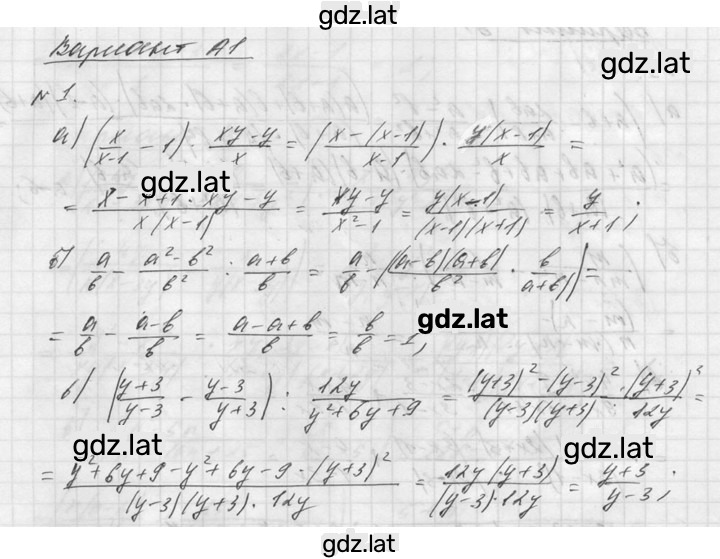 gdz.lat
Вариант А1
gdz.lat
№ 1.
а) (x/(x-1) - 1) · (xy-y)/x = ((x-(x-1))/(x-1)) · y(x-1)/x =
gdz.lat
= (x-x+1 · xy-y)/(x(x-1)) = (xy-y)/(x²-1) = y(x-1)/((x-1)(x+1)) = y/(x+1);
б) a/b - (a²-b²)/b² : (a+b)/b = a/b - ((a-b)(a+b)/b² · b/(a+b)) =
gdz.lat
= a/b - (a-b)/b = (a-a+b)/b = b/b = 1,
в) ((y+3)/(y-3) - (y-3)/(y+3)) : 12y/(y²+6y+9) = ((y+3)²-(y-3)² · (y+3)²)/((y-3)(y+3) · 12y) =
gdz.lat gdz.lat
= (y²+6y+9-y²+6y-9 · (y+3)²)/((y-3)(y+3) · 12y) = 12y(y+3)/((y-3)·12y) = (y+3)/(y-3);
gdz.lat